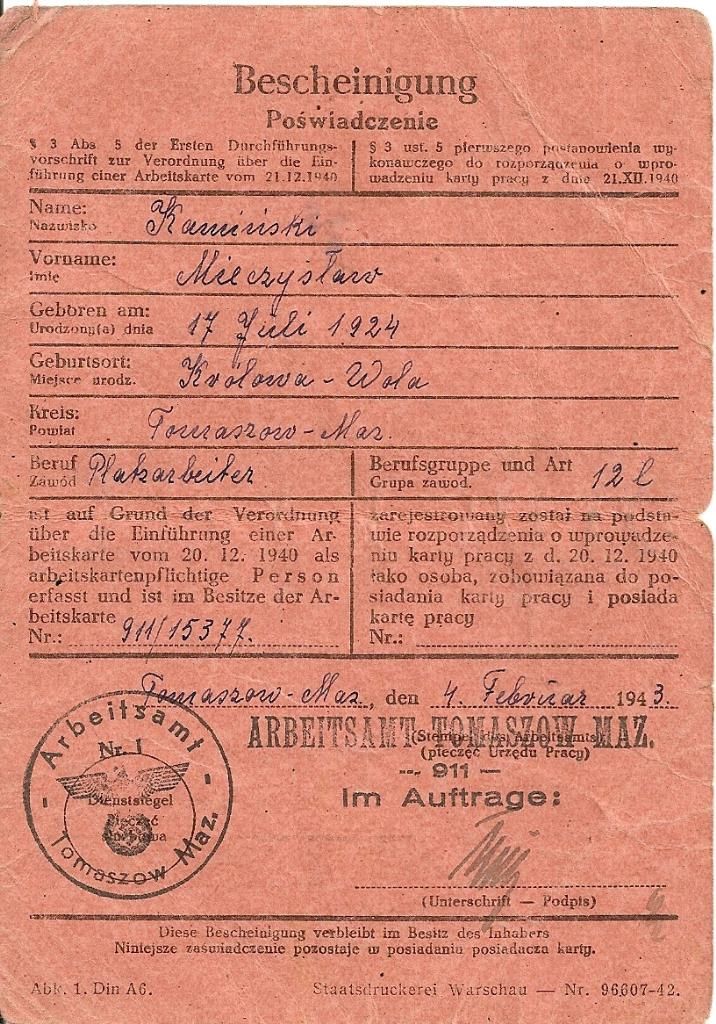 Bescheinigung
Poświadczenie
§ 3 Abs 5 der Ersten Durchführungs-
vorschrift zur Verordnung über die Ein-
führung einer Arbeitskarte vom 21.12.1940
§ 3 ust. 5 pierwszego postanowienia wy-
konawczego do rozporządzenia o wpro-
wadzeniu karty pracy z dnie 21.XII.1940
Name: Kamiński
Nazwisko
Vorname: Mieczysław
Imię
Geboren am: 17 Juli 1924
Urodzony(a) dnia
Geburtsort: Królowa-Wola
Miejsce urodz.
Kreis: Tomaszow-Maz.
Powiat
Beruf Platzarbeiter
Zawód
Berufsgruppe und Art 12 l
Grupa zawod.
ist auf Grund der Verordnung
über die Einführung einer Ar-
beitskarte vom 20. 12. 1940 als
arbeitskartenpflichtige Person
erfasst und ist im Besitze der Ar-
beitskarte
Nr.: 911/15377.
zarejestrowany został na podsta-
wie rozporządzenia o wprowadze-
niu karty pracy z d. 20. 12. 1940
jako osoba, zobowiązana do po-
siadania karty pracy i posiada
kartę pracy
Nr.:
Tomaszow-Maz., den 4. Februar 1943.
ARBEITSAMT TOMASZOW MAZ.
(Stempel des Arbeitsamts)
(pieczęć Urzędu Pracy)
— 911 —
Im Auftrage:
Arbeitsamt
Nr. 1
Dienstsiegel
Tomaszow Maz.
(Unterschrift — Podpis)
Diese Bescheinigung verbleibt im Besitz des Inhabers
Niniejsze zaświadczenie pozostaje w posiadaniu posiadacza karty.
Abk. 1. Din A6.
Staatsdruckerei Warschau — Nr. 96607-42.